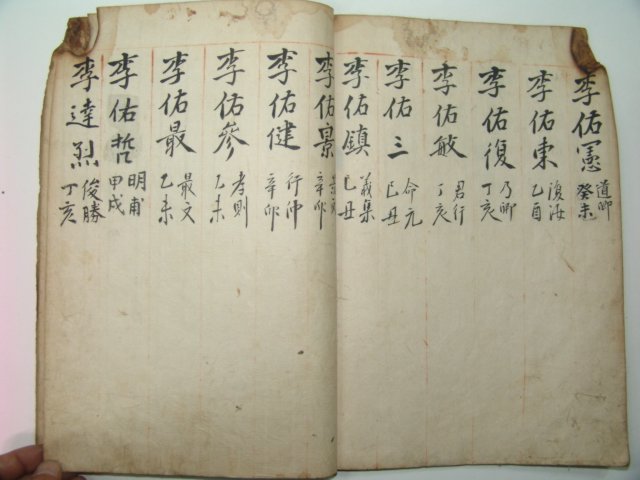 李佑憲 道卿 癸未
李佑東 復海 乙酉
李佑復 乃卿 丁亥
李佑敏 君行 丁亥
李佑三 命元 己丑
李佑鎮 義集 己丑
李佑景 辛卯
李佑健 行仲 辛卯
李佑參 孝則 乙未
李佑最 最文 乙未
李佑哲 明甫 甲戌
李達烈 俊勝 丁亥